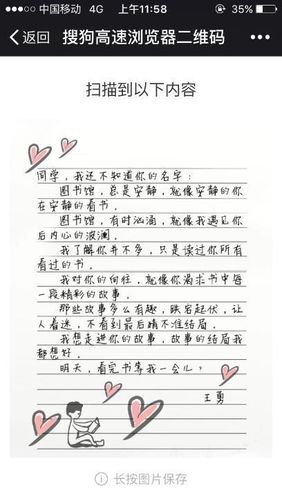 中国移动 4G 上午11:58 35%
返回 搜狗高速浏览器二维码
扫描到以下内容
同学，我还不知道你的名字：
图书馆，总是安静，就像安静的你
在安静的看书。
图书馆，有时汹涌，就像我遇见你
后内心的波澜。
我了解你并不多，只是读过你所有
看过的书。
我对你的向往，就像你渴求书中每
一段精彩的故事。
那些故事多么有趣，跌宕起伏，让
人着迷，不看到最后瞎不准结局。
我想走进你的故事，故事的结局我
都想好。
明天，看完书等我一会儿？
王勇
长按图片保存